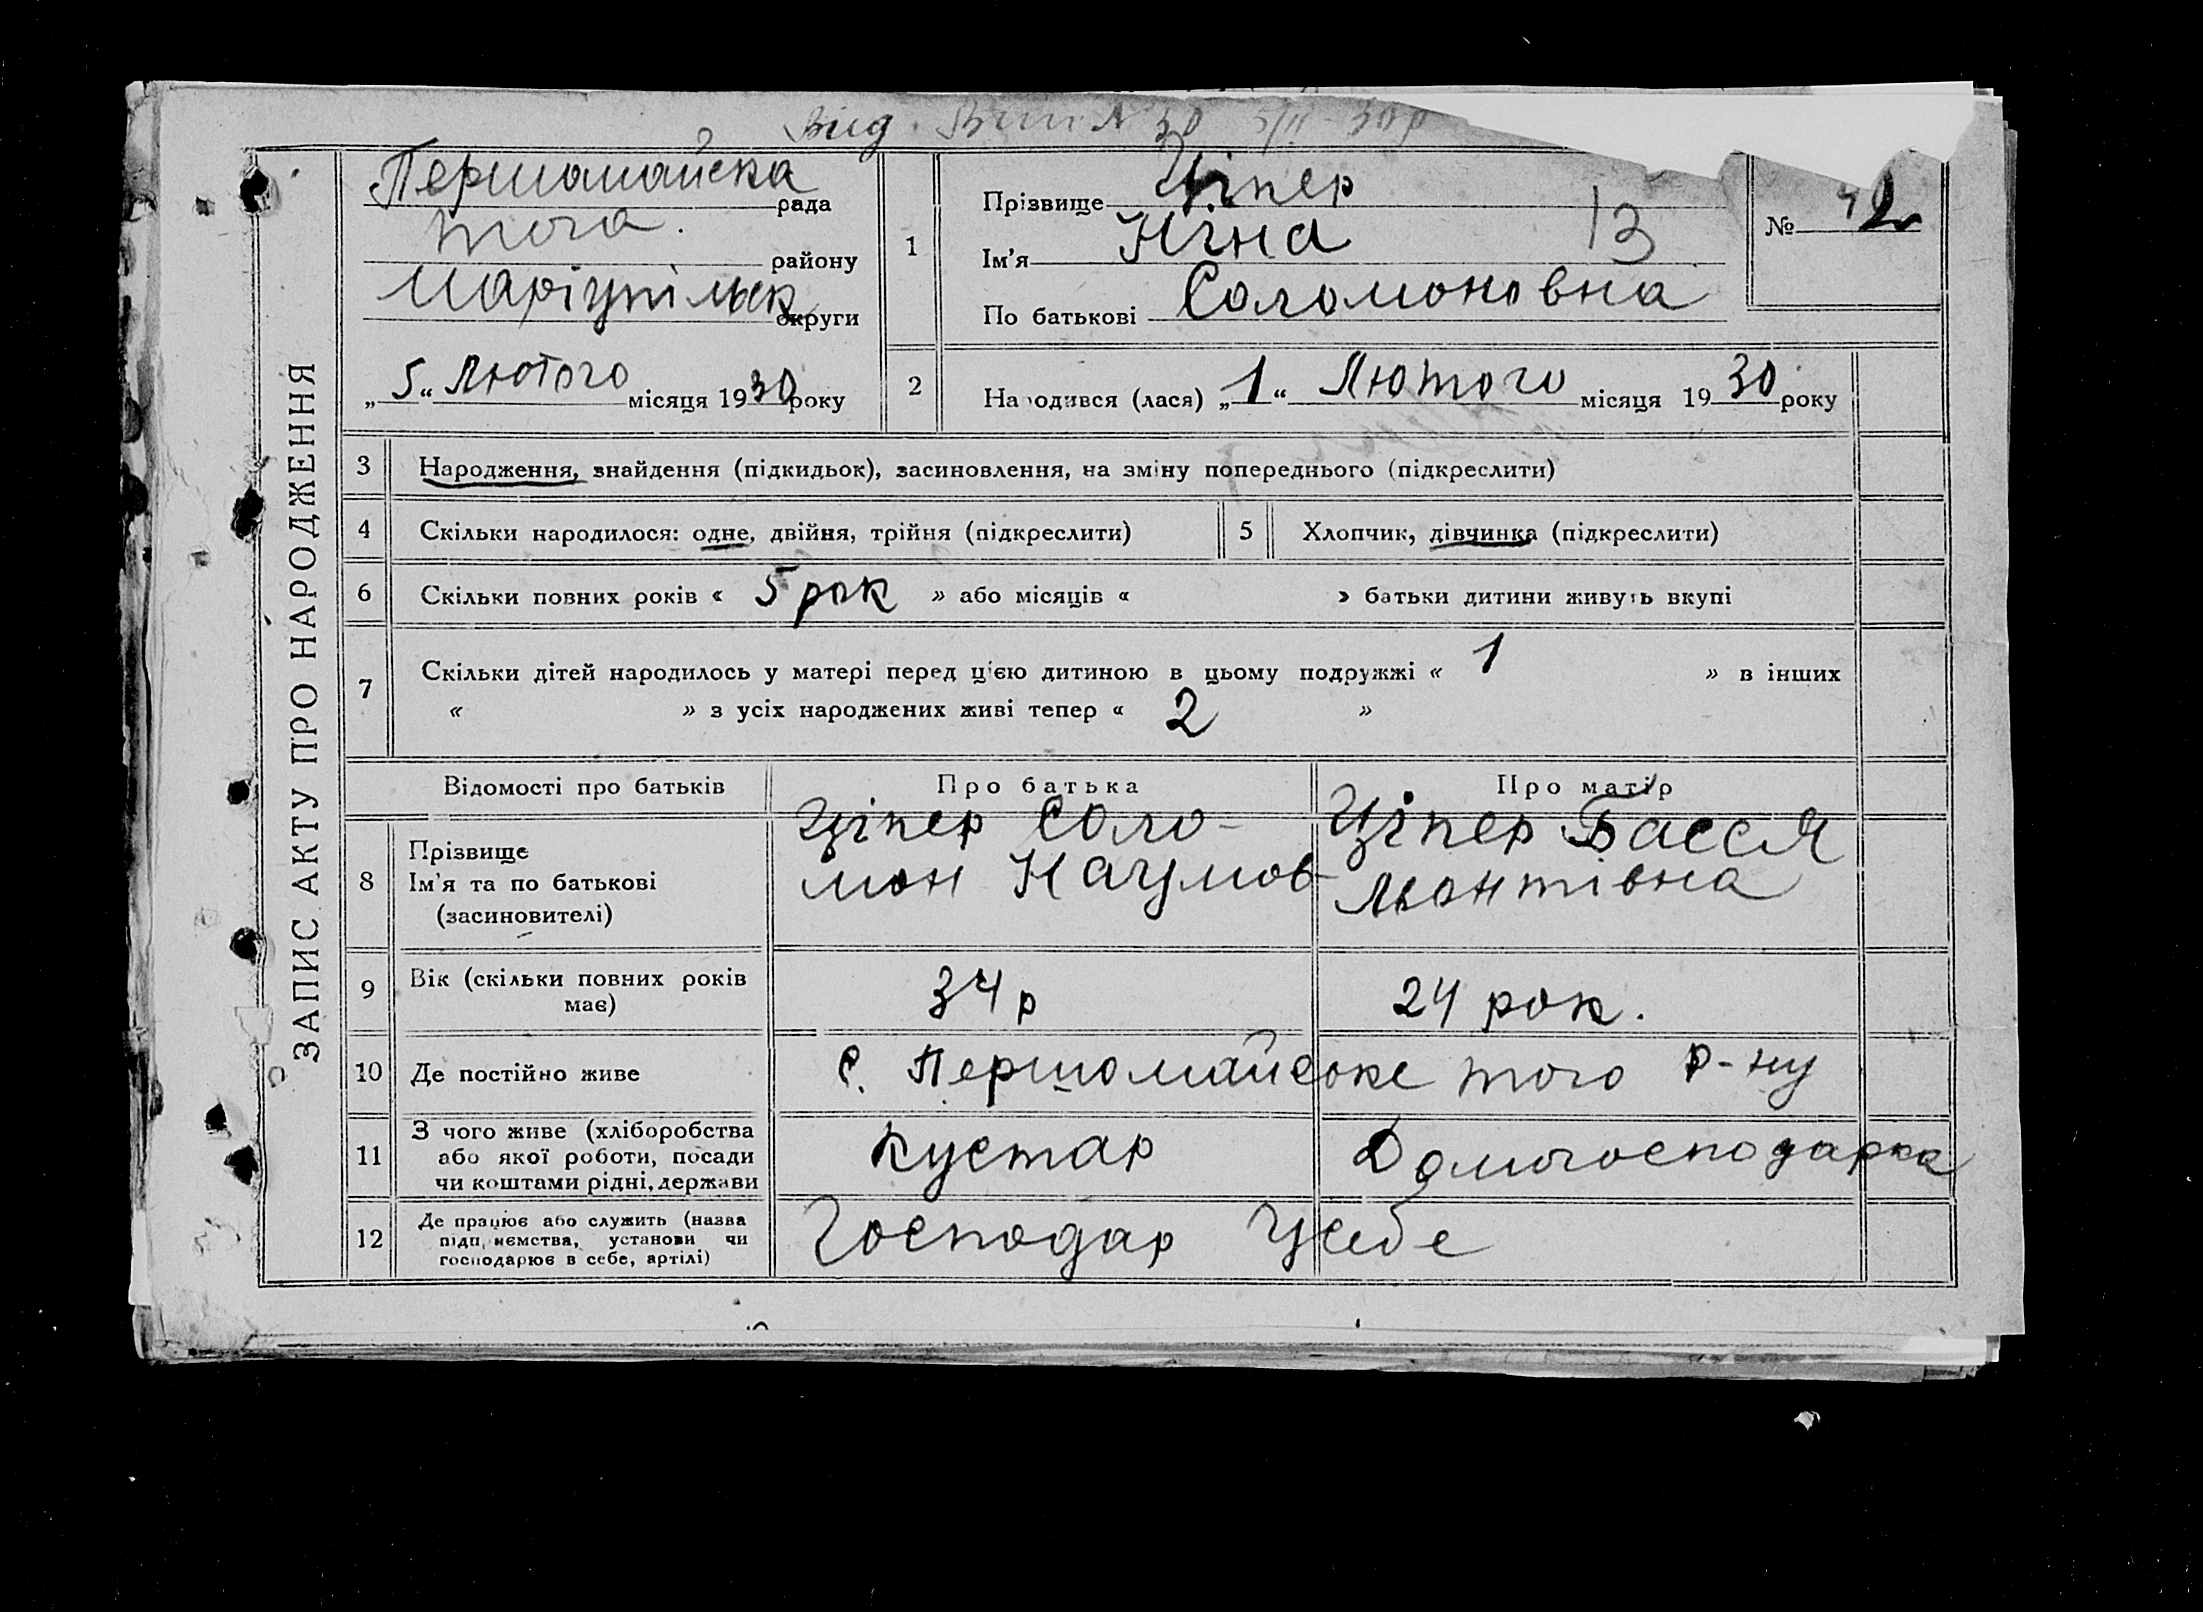 Вид. Вип. № 30 5/II-30р
Першомайска
рада
того.
району
Маріупільск
округи
„5“ Лютого місяця 1930 року
1
Прізвище Ціпер
Ім'я Ніна
13
По батькові Соломоновна
№ 42
2
Народився (лася) „1“ Лютого місяця 1930 року
ЗАПИС АКТУ ПРО НАРОДЖЕННЯ
3 Народження, знайдення (підкидьок), засиновлення, на зміну попереднього (підкреслити)
4 Скільки народилося: одне, двійня, трійня (підкреслити) 5 Хлопчик, дівчинка (підкреслити)
6 Скільки повних років « 5 рок » або місяців « » батьки дитини живуть вкупі
7 Скільки дітей народилось у матері перед цією дитиною в цьому подружжі « 1 » в інших
« » з усіх народжених живі тепер « 2 »
Відомості про батьків Про батька Про матір
8 Прізвище
Ім'я та по батькові
(засиновителі)
Ціпер Соло-
мон Наумов
Ціпер Басся
Льонтівна
9 Вік (скільки повних років
має)
34 р
24 рок.
10 Де постійно живе
с. Першомайське того р-ну
11 З чого живе (хліборобства
або якої роботи, посади
чи коштами рідні, держави
Кустар
Домогосподарка
12 Де працює або служить (назва
підприємства, установи чи
господарює в себе, артілі)
Господар Усебе